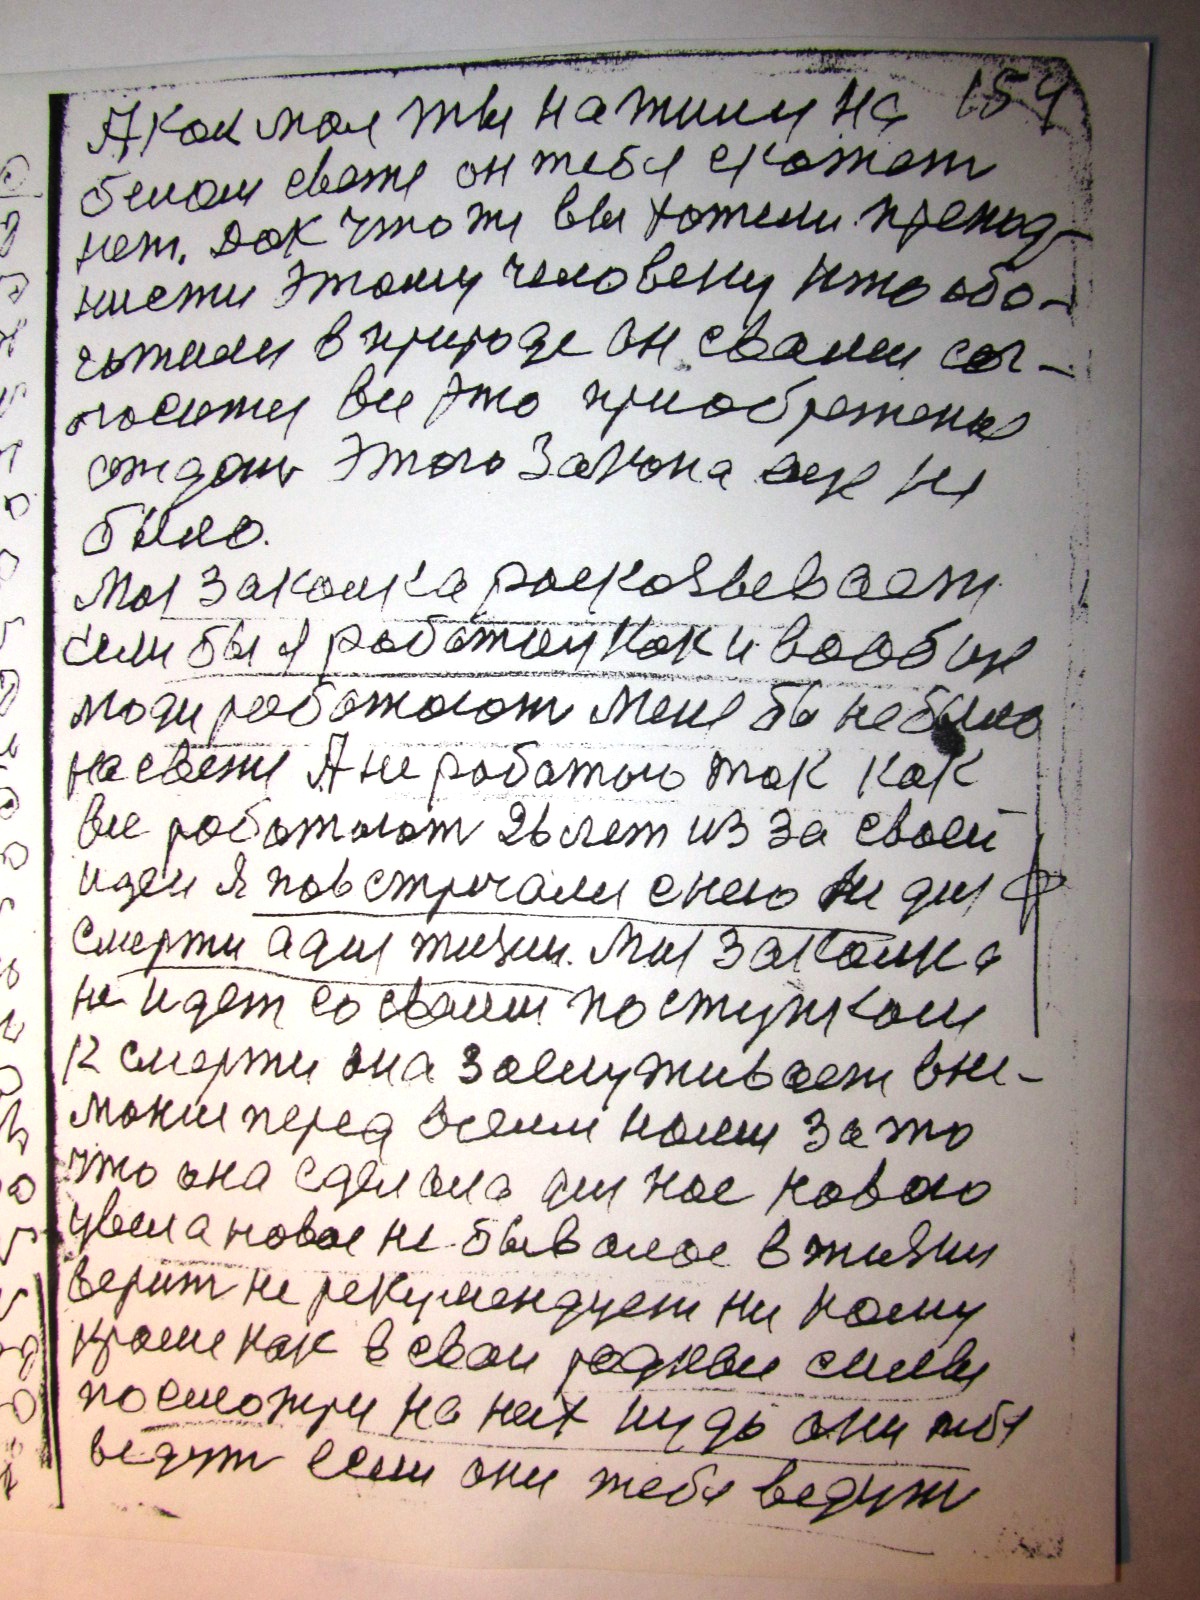 154
А как мол ты на тили на
белом свете он тебя скажет
нет. Док что ж вы хотели препод-
нисти этому человеку кто обо-
в природе он свами сог-
все это приобретены
этого закона еще не
было.
Моя Закалка расказывает
если бы я работал как и вообще
люди работают меня бы небыло
насвете Я не работаю так как
все работают 26 лет из за своей
идеи я повстречался снею не для
смерти а для жизни. Моя Закалка
не идет со своим поступком
к смерти она заслуживает вни-
мание перед всеми нами за то
что она сделала для нас новою
цвела новое не бывалое в жизни
верит не рекумендует ни кому
кроме как в свои родные силы
посмотри на них куда они тебя
ведут если они тебя ведут